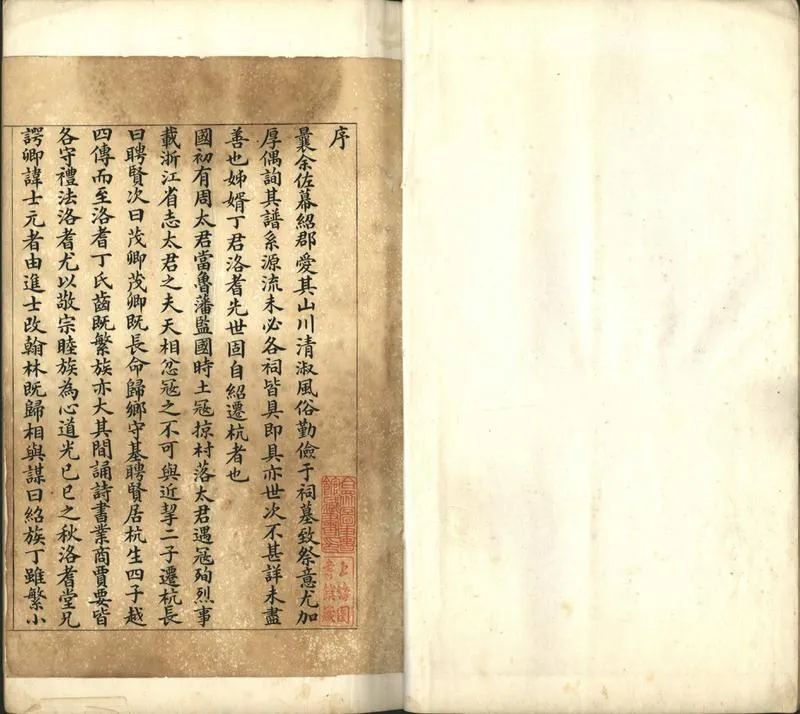 序
曩余佐幕紹郡愛其山川清淑風俗勤儉于祠墓致祭意尤加
厚偶詢其譜系源流未必各祠皆具即具亦世次不甚詳未盡
善也姊婿丁君洛耆先世固自紹遷杭者也
國初有周太君當魯藩監國時土冦掠村落太君遇冦殉烈事
載浙江省志太君之夫天相忿冦之不可與近挈二子遷杭長
曰聘賢次曰茂卿茂卿既長命歸鄉守基聘賢居杭生四子越
四傳而至洛耆丁氏齒既繁族亦大其間誦詩書業商賈要皆
各守禮法洛耆尤以敬宗睦族為心道光已巳之秋洛耆堂兄
諤卿諱士元者由進士改翰林既歸相與謀曰紹族丁雖繁小
上海圖
書館藏